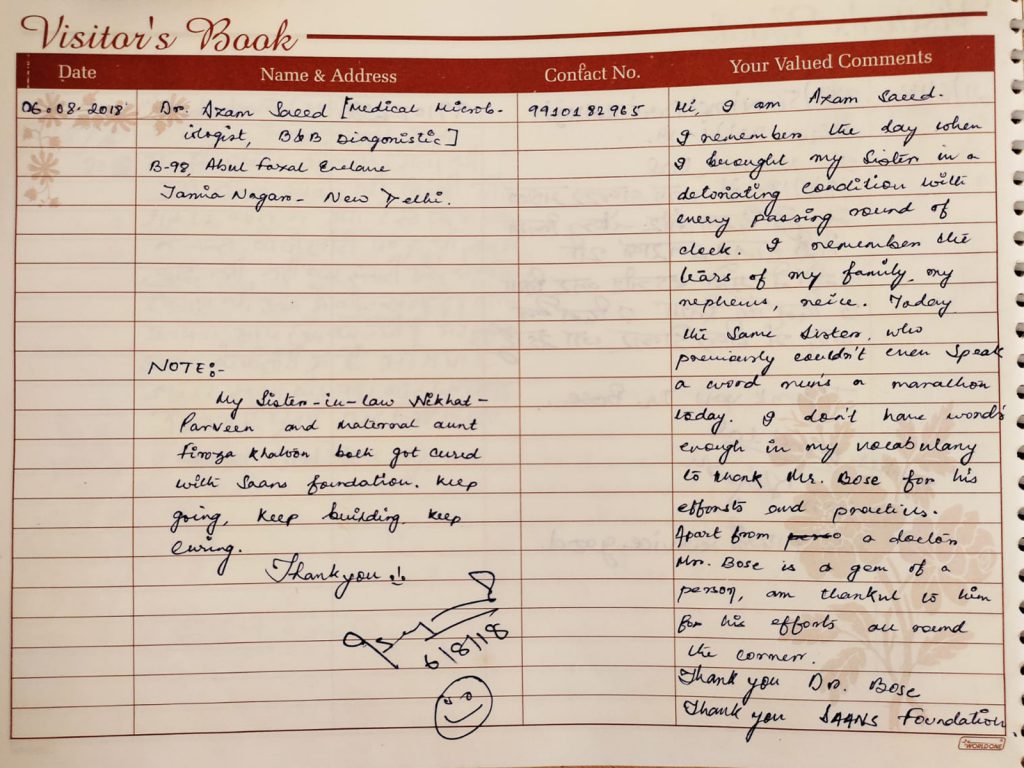 Visitor's Book
Date
Name & Address
Contact No.
Your Valued Comments
06.08.2018
Dr. Azam Saeed [Medical Microb-
iologist, B&B Diagonistic]
B-98, Abul Fazal Enclave
Jamia Nagar - New Delhi.
9910182965
Hi, I am Azam Saeed.
I remember the day when
I brought my Sister in a
detoriating condition with
every passing round of
clock. I remember the
tears of my family, my
nephews, neice. Today
the same Sister, who
previously couldn't even Speak
a word runs a marathon
today. I don't have words
enough in my vocabulary
to thank Mr. Bose for his
efforsts and practices.
Apart from a doctor
Mr. Bose is a gem of a
person, am thankful to him
for his efforts all round
the corner.
Thank you Dr. Bose
Thank you SAANS Foundation
NOTE:-
My Sister-in-law Nikhat-
Parveen and maternal aunt
Firoza Khatoon both got cured
with Saans foundation. Keep
going, Keep building, Keep
curing.
Thank you
6/8/18
WORLDONE